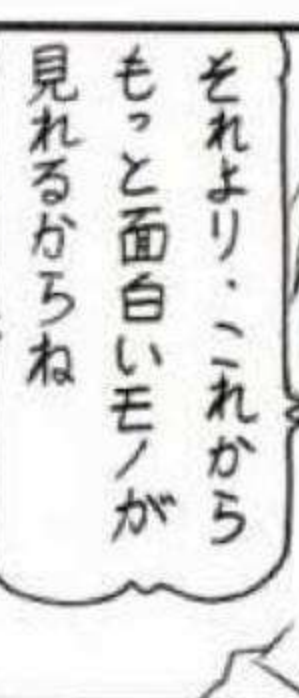 それより・これから
もっと面白いモノが
見れるからね